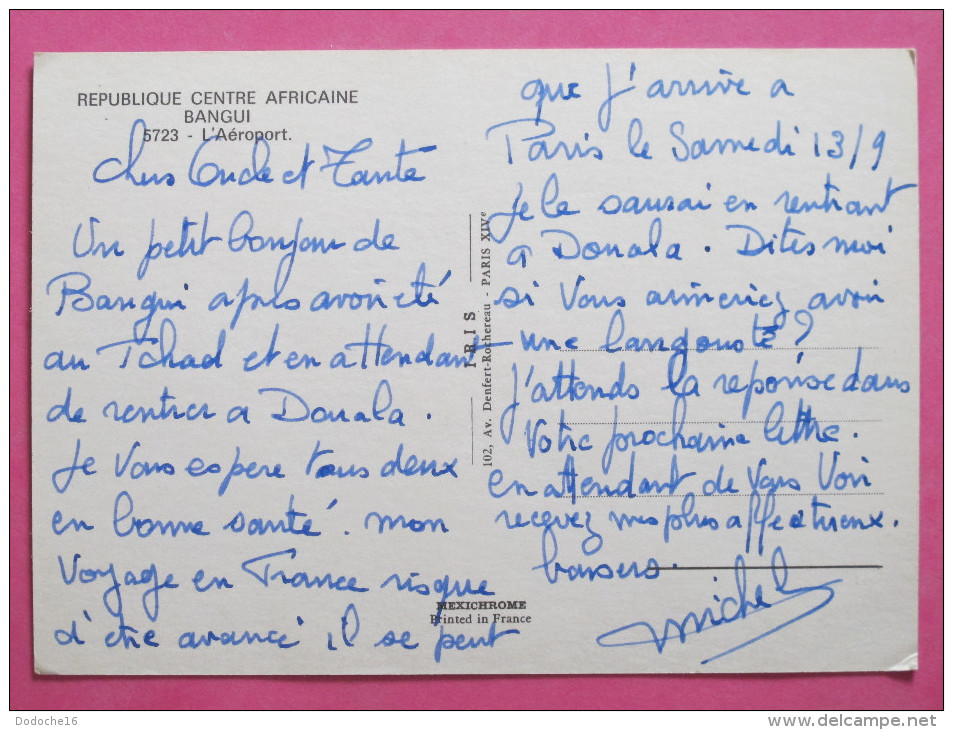 REPUBLIQUE CENTRE AFRICAINE
BANGUI
5723 - L'Aéroport.
Chers Oncle et Tante
Un petit bonjour de
Bangui après avoir été
au Tchad et en attendant
de rentrer a Douala.
Je Vous espere tous deux
en bonne santé. mon
Voyage en France risque
d'être avancé il se peut
que J'arrive a
Paris le Samedi 13/9
Je le saurai en rentrant
a Douala. Dites moi
si Vous aimeriez avoir
une langouste?
J'attends la reponse dans
Votre prochaine lettre.
en attendant de Vous Voir
recevez mes plus affectueux.
baisers.
Michel
IRIS
102, Av. Denfert-Rochereau - PARIS XIVe
MEXICHROME
Printed in France
Dodoche16
www.delcampe.net